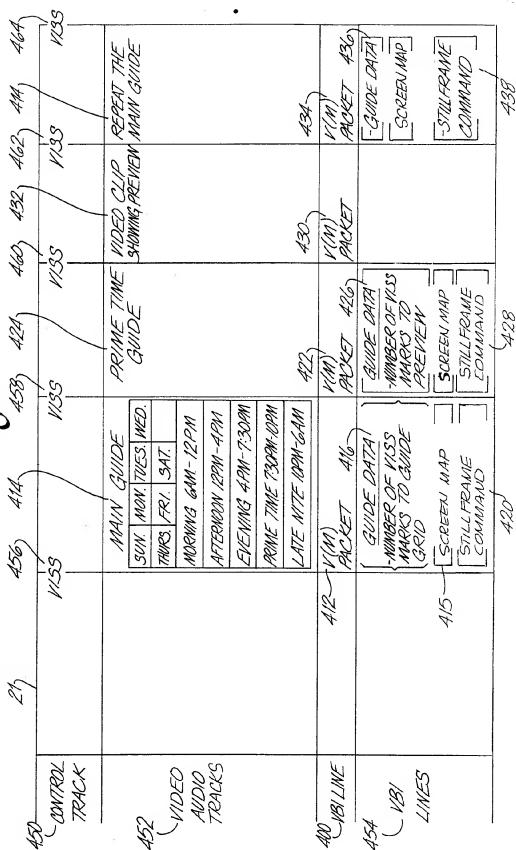 21 456 414 458 424 460 432 462 414 464
450 CONTROL TRACK
VISS VISS VISS VISS VISS
452 VIDEO AUDIO TRACKS
MAIN GUIDE
SUN. MON. TUES. WED.
THURS. FRI. SAT.
MORNING 6AM-12PM
AFTERNOON 12PM-4PM
EVENING 4PM-7:30PM
PRIME TIME 7:30PM-10PM
LATE NITE 10PM-6AM
PRIME TIME
GUIDE
VIDEO CLIP
SHOWING PREVIEW
REPEAT THE
MAIN GUIDE
400 VBI LINE
412 V(M) PACKET
422 V(M) PACKET
430 V(M) PACKET
434 V(M) PACKET
454 VBI LINES
416
GUIDE DATA
-NUMBER OF VISS
MARKS TO GUIDE
GRID
415 SCREEN MAP
STILLFRAME
COMMAND
420
426
GUIDE DATA
-NUMBER OF VISS
MARKS TO
PREVIEW
SCREEN MAP
STILLFRAME
COMMAND
428
436
-GUIDE DATA
SCREEN MAP
-STILLFRAME
COMMAND
438